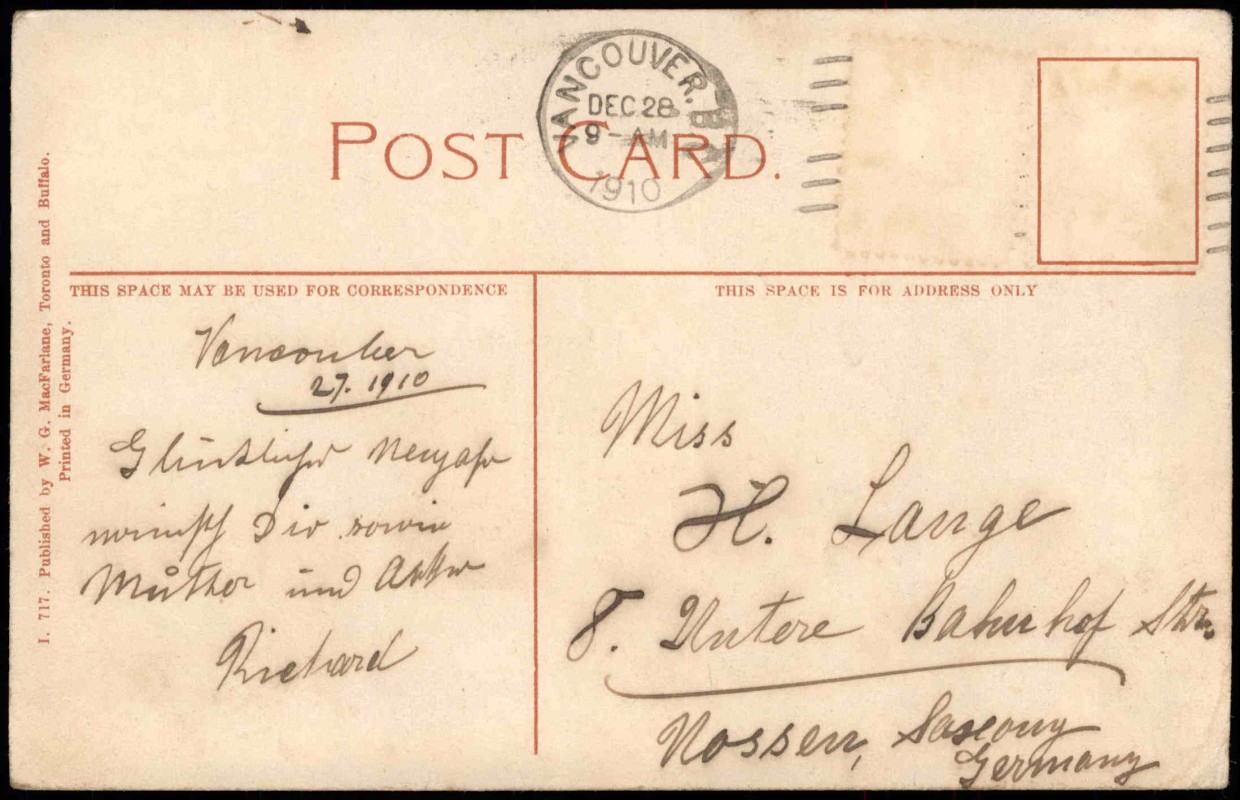 VANCOUVER. B.
DEC 28
9-AM
1910
POST CARD.
THIS SPACE MAY BE USED FOR CORRESPONDENCE
THIS SPACE IS FOR ADDRESS ONLY
I. 717. Published by W. G. MacFarlane, Toronto and Buffalo.
Printed in Germany.
Vancouber
27. 1910
Glücklicher Neujahr
wünsch Dir sowie
Mutter und
Richard
Miss
H. Lange
8. Untere Bahnhof Str.
Nossen, Saxony
Germany